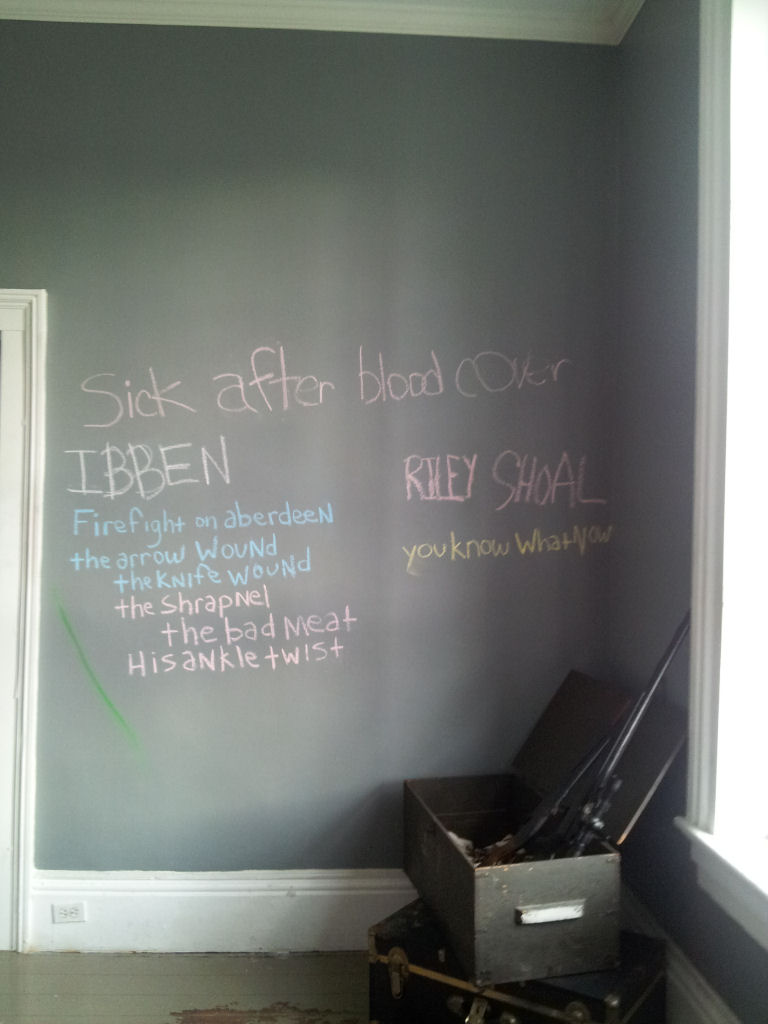 Sick after blood cover
IBBEN
Firefight on aberdeen
the arrow wound
the knife wound
the shrapnel
the bad meat
His ankle twist
RILEY SHOAL
you know what now